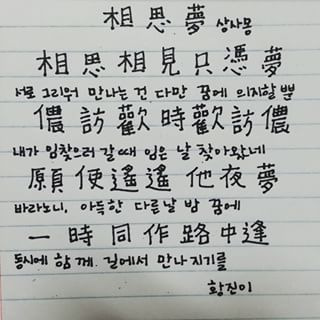 相思夢 상사몽
相思相見只憑夢
서로 그리워 만나는 건 다만 꿈에 의지할 뿐
儂訪歡時歡訪儂
내가 임 찾으러 갈 때 임은 날 찾아왔네
願使遙遙他夜夢
바라노니, 아득한 다른 날 밤 꿈에
一時同作路中逢
동시에 함께. 길에서 만나지기를
황진이